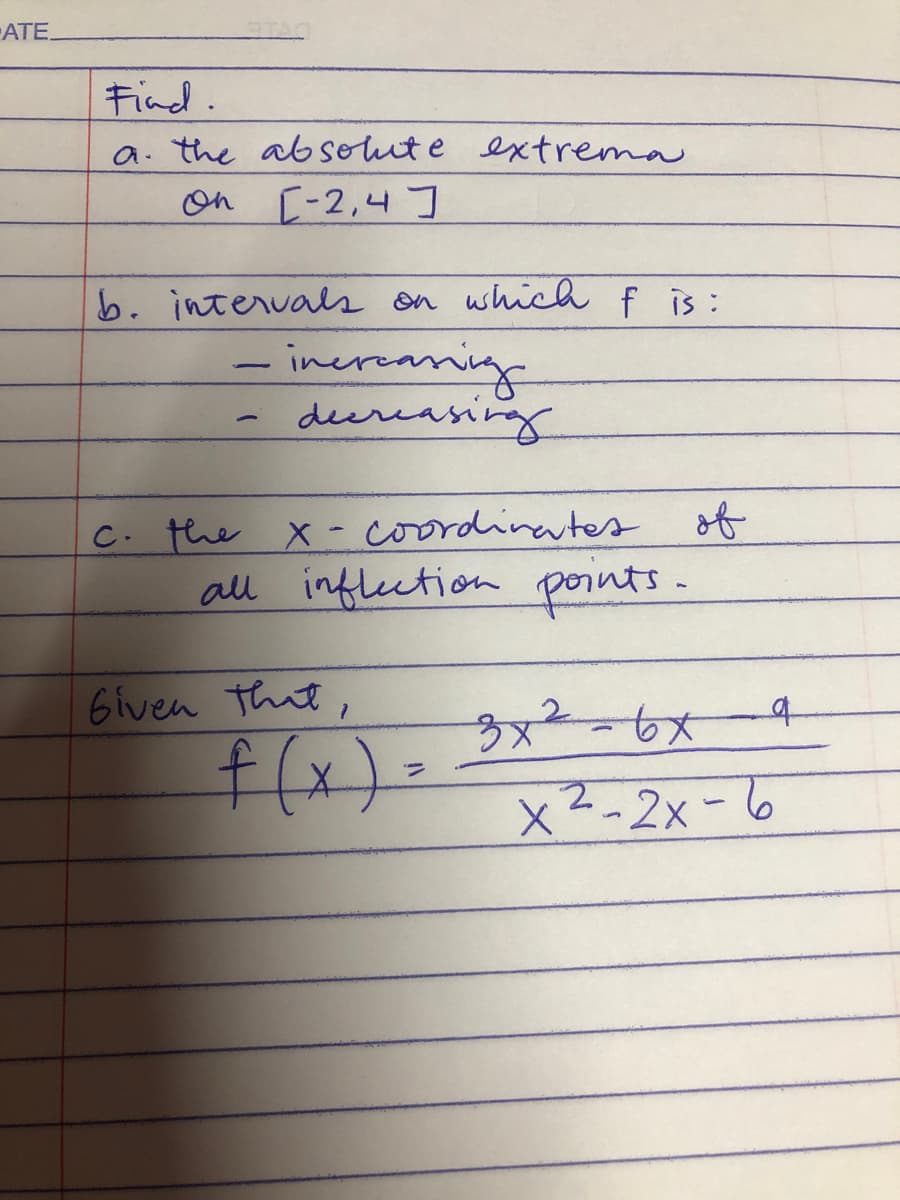 DATE
Find.
a. the absolute extrema
on [-2,4]
b. intervals on which f is:
- increasing
- decreasing
c. the x-coordinates of
all inflection points.
Given that,
f(x) = 3x² - 6x - 9
x² - 2x - 6